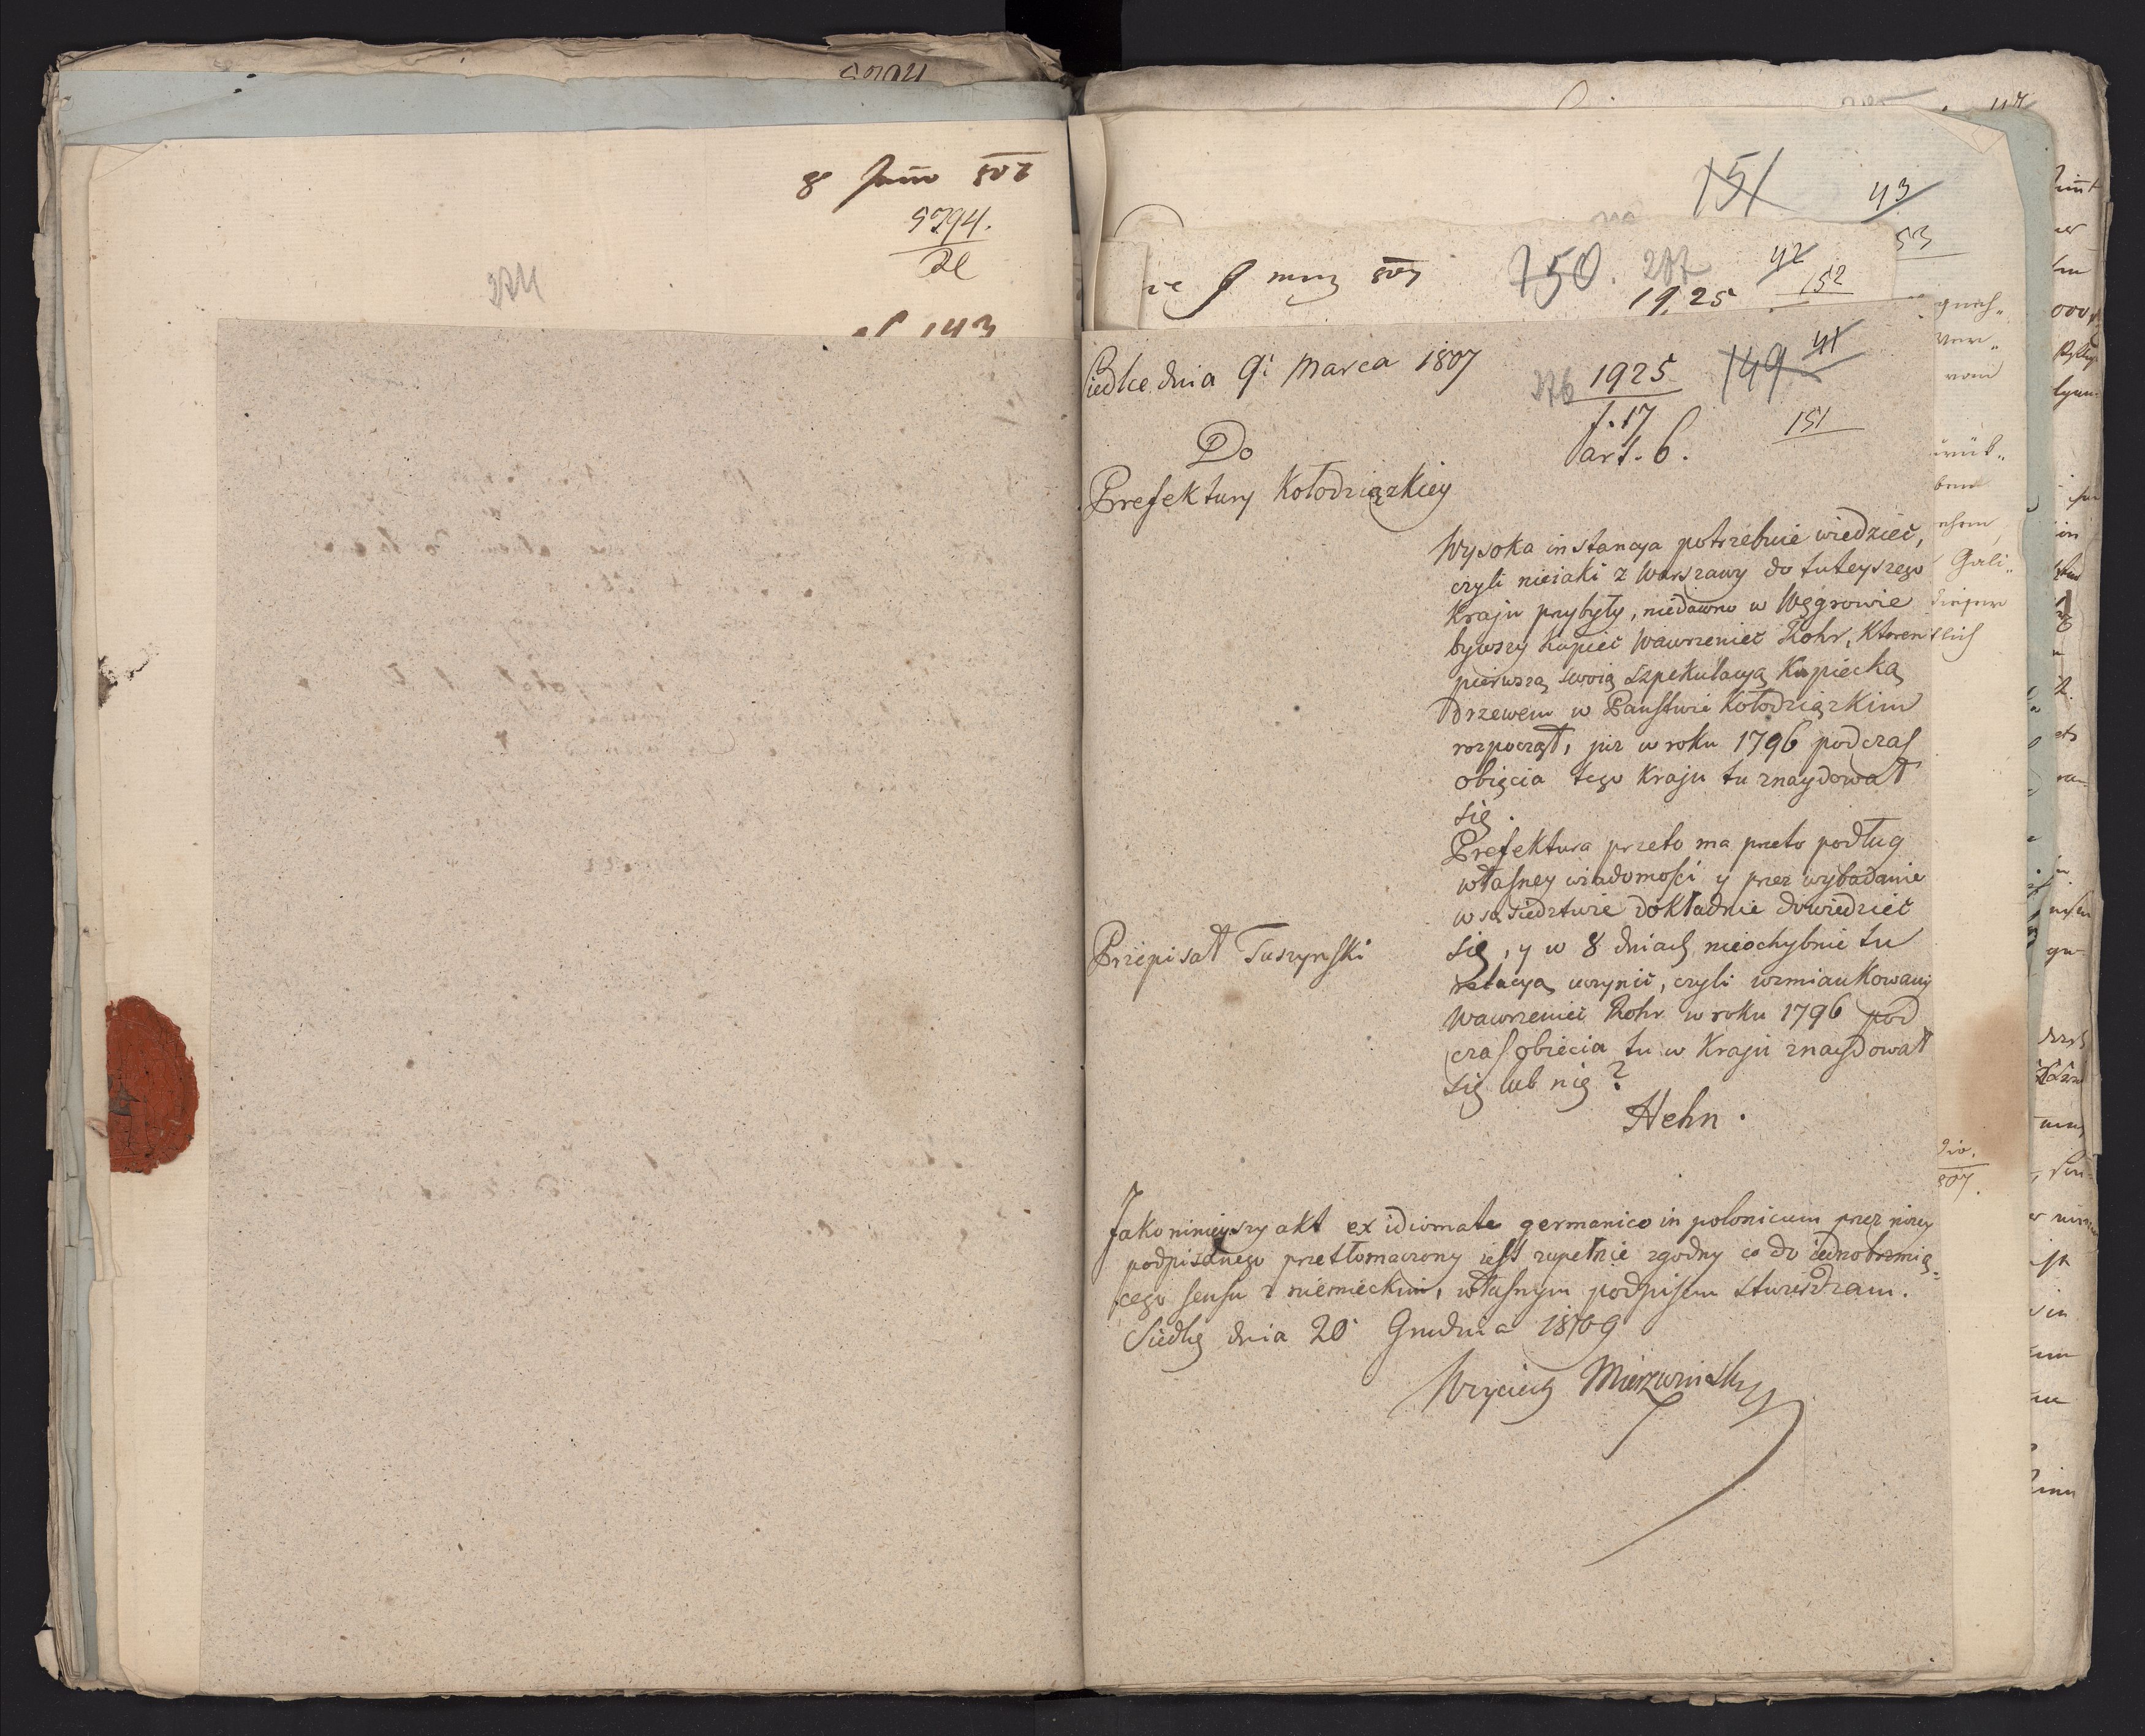 8 Junio 807
5294.
274
1925
Siedlce dnia 9i Marca 1807
276 1925 149 41
f. 17 151
Do art. 6.
Prefektury Kołodziązkiey
Wysoka instancya potrzebuie wiedzieć,
czyli nieiaki z Warszawy do tuteyszego
kraju przybyły, niedawno w Węgrowie
bywszy Kupiec Wawrzeniec Rohr, ktoren
pierwszą swoią szpekulacyą Kupiecką
Drzewem w Panstwie Kołodziązkim
rozpoczął, już w roku 1796 podczas
obięcia tego kraju tu znaydował
się.
Prefektura przeto ma przeto podług
własney wiadomości y przez wybadanie
w sąsiedztwie dokładnie dowiedzieć
się, y w 8 dniach nieochybnie tu
relacyą uczynić, czyli wzmiankowany
Przepisał Tuszyński
Wawrzeniec Rohr w roku 1796 pod
czas obiecia tu w Kraju znaydował
się lub nię?
Hehn.
Jako ninieyszy akt ex idiomate germanico in polonicum przez niżey
podpisanego przetłomaczony iest zupełnie zgodny co do iednobrzmią=
cego sensu z niemieckim, własnym podpisem stwierdzam.
Siedlce dnia 20 Grudnia 1809
Woyciech Mierzwinski
150. 207 42
152
151 43
53